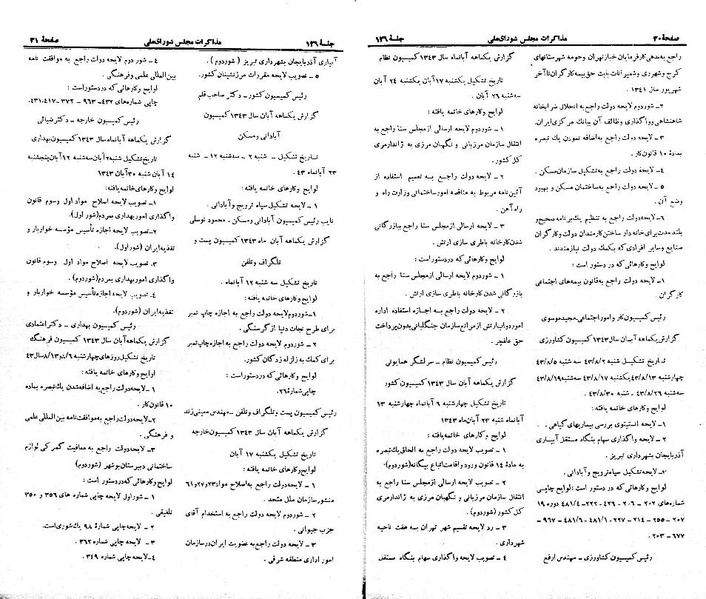 صفحهٔ ۳۰ مذاکرات مجلس شورای‌ملی جلسهٔ ۱۳۶
راجع بدهی کارفرمایان خبازتهران وحومه شهرستانهای
کرج وشهرری وشمیرانات بابت حق بیمه‌کارگران تاآخر
شهریور سال ۱۳۴۱
۲ – لایحه دولت راجع به انحلال ضرابخانه
شاهنشاهی وواگذاری وظائف آن ببانک مرکزی ایران.
۳ – لایحه دولت راجع به‌اضافه نمودن یک تبصره
بمادهٔ ۱۰ قانون کار.
۴ – لایحهٔ دولت راجع به‌تشکیل سازمان مسکن.
۵ – لایحه دولت راجع به‌ساختمان مسکن و بهبود
وضع آن.
۶ – لایحه دولت راجع به تنظیم یک برنامه صحیح و
بلند مدت برای خانه دار ساختن کارمندان دولت وکارگران
صنایع وسایر افرادی که بکمک دولت نیازمندند.
لوایح وکارهائی که در دستور است :
لایحهٔ دولت راجع به‌قانون بیمه‌های اجتماعی
کارگران
رئیس کمیسیون کار و امور اجتماعی – مجید موسوی
گزارش یکماهه آبان سال ۱۳۴۳ کمیسیون کشاورزی
تاریخ تشکیل شنبه ۴۳/۸/۲ سه شنبه ۴۳/۸/۵
چهارشنبه ۴۳/۸/۱۳ یکشنبه ۴۳/۸/۱۷ سه‌شنبه ۴۳/۸/۱۹
سه‌شنبه ۴۳/۸/۲۶ شنبه ۴۳/۸/۳۰.
لوایح وکارهای خاتمه یافته :
۱ – لایحه انستیتوی بررسی بیماریهای گیاهی.
۲ – لایحه واگذاری سهام بنگاه مستقل آبیاری
آذربایجان بشهرداری تبریز.
۳ – لایحه تشکیل سپاه ترویج وآبادانی.
لوایح وکارهائی که در دستور است : لوایح چاپی
شماره‌های ۲۰۲ – ۲۰۶ – ۲۲۹ – ۲۲۲ – ۴۸۱/۴ دوره ۱۹
۲۰۷ – ۲۵۵ – ۲۱۴ – ۲۲۷ – ۴۸۱/۱ – ۴۸۱/۶ – ۹۶۷
۶۷۷ – ۲۰۳.
رئیس کمیسیون کشاورزی – مهندس ارفع
گزارش یکماهه آبانماه سال ۱۳۴۳ کمیسیون نظام
تاریخ تشکیل یکشنبه ۱۷ آبان یکشنبه ۲۴ آبان
سه‌شنبه ۲۶ آبان.
لوایح وکارهای خاتمه یافته :
۱ – شور دوم لایحه ارسالی ازمجلس سنا راجع به
انتقال سازمان مرزبانی و نگهبان مرزی به ژاندارمری
کل کشور.
۲ – لایحه دولت راجع به تعمیم استفاده از
آئین‌نامه مربوط به مناقصه امور ساختمانی وزارت راه و
راه آهن.
۳ – لایحه ارسالی ازمجلس سنا راجع ببازرگانی
شدن کارخانه باطری سازی ارتش.
لوایح وکارهائی که دردستور است :
۱ – شور دوم لایحه ارسالی از مجلس سنا راجع به
بازرگانی شدن کارخانه باطری سازی ارتش.
۲ – لایحه دولت راجع به اجازه استفاده اداره
امور دواب ارتش از مراتع سازمان جنگلبانی بدون پرداخت
حق علفچر.
رئیس کمیسیون نظام – سرلشگر همایونی
گزارش یکماهه آبانماه سال ۱۳۴۳ کمیسیون کشور
تاریخ تشکیل چهارشنبه ۶ آبانماه چهارشنبه ۱۳
آبانماه شنبه ۲۳ آبان‌ماه ۱۳۴۳
لوایح وکارهای خاتمه یافته :
۱ – تصویب لایحه دولت راجع به الحاق یک تبصره
به ماده ۱۴ قانون ورود واقامت اتباع بیگانه (شوردوم).
۲ – تصویب لایحه ارسالی از مجلس سنا راجع به
انتقال سازمان مرزبانی و نگهبان مرزی به ژاندارمری
کل کشور (شوردوم).
۳ – رد لایحه تقسیم شهر تهران به هفت ناحیه
شهرداری.
۴ – تصویب لایحه واگذاری سهام بنگاه مستقل
جلسهٔ ۱۳۶ مذاکرات مجلس شورای‌ملی صفحهٔ ۳۱
آبیاری آذربایجان بشهرداری تبریز (شوردوم).
۵ – تصویب لایحه مقررات مرزنشینان کشور.
رئیس کمیسیون کشور – دکتر صاحب قلم
گزارش یکماهه آبان سال ۱۳۴۳ کمیسیون
آبادانی ومسکن
تاریخ تشکیل – شنبه ۲ – سه‌شنبه ۱۲ – شنبه
۲۳ آبانماه ۴۳.
لوایح وکارهای خاتمه یافته :
۱ – لایحه تشکیل سپاه ترویج وآبادانی.
نایب رئیس کمیسیون آبادانی ومسکن – محمود توسلی
گزارش یکماهه آبان ماه ۱۳۴۳ کمیسیون پست و
تلگراف وتلفن
تاریخ تشکیل سه شنبه ۱۲ آبانماه.
لوایح وکارهای خاتمه یافته :
۱ – شوردوم لایحه دولت راجع به اجازه چاپ تمبر
برای طرح نجات دنیا از گرسنگی.
۲ – لایحه دولت راجع به اجازه چاپ تمبر
برای کمک به زلزله زدگان کشور.
لوایح وکارهائی که دردستور است :
چاپی شمارهٔ ۲۶۰
رئیس کمیسیون پست وتلگراف وتلفن – مهندس معینی زند
گزارش یکماهه آبان سال ۱۳۴۳ کمیسیون خارجه
تاریخ تشکیل یکشنبه ۱۷ آبان
۱ – لایحه دولت راجع به‌اصلاح مواد ۲۳و۲۷و۶۱
منشور سازمان ملل متحد.
۲ – شوردوم لایحه دولت راجع به استخدام آقای
جرب حیوانی.
۳ – لایحه دولت راجع به عضویت ایران در سازمان
امور اداری منطقه شرقی.
۴ – شور دوم لایحه دولت راجع به موافقت نامه
بین‌المللی علمی وفرهنگی.
لوایح وکارهائی که دردستور است :
چاپی شماره‌های ۴۳۷ – ۹۶۳ – ۳۷۲ – ۴۳۱،۴۱۷.
رئیس کمیسیون خارجه – دکتر ضیائی
گزارش یکماهه آبانماه سال ۱۳۴۳ کمیسیون بهداری
تاریخ تشکیل شنبه ۲ آبان سه‌شنبه ۱۲ آبان پنجشنبه
۱۴ آبان شنبه ۳۰ آبان ۱۳۴۳
لوایح وکارهای خاتمه یافته :
۱ – تصویب لایحه اصلاح مواد اول وسوم قانون
واگذاری امور بهداری بمردم (شور اول).
۲ – تصویب لایحه اجازه تأسیس مؤسسه خواربار و
تغذیه ایران (شور اول).
۳ – تصویب لایحه اصلاح مواد اول وسوم قانون
واگذاری امور بهداری بمردم (شوردوم).
۴ – تصویب لایحه اجازه تأسیس مؤسسه خواربار و
تغذیه ایران (شوردوم).
رئیس کمیسیون بهداری – دکتر اعتمادی
گزارش یکماهه آبان سال ۱۳۴۳ کمیسیون فرهنگ
تاریخ تشکیل روزهای چهارشنبه ۶ر۸ و ۱۳ر۸سال۴۳
لوایح وکارهای خاتمه یافته :
۱ – لایحه دولت راجع به اضافه شدن یک تبصره بماده
۱۰ قانون کار.
۲ – لایحه دولت راجع به‌موافقت‌نامه بین‌المللی علمی
و فرهنگی.
۳ – لایحه دولت راجع به معافیت گمرکی لوازم
ساختمانی دبیرستان نوشهر (شوردوم)
لوایح وکارهائی که دردستور است :
۱ – شوراول لایحه چاپی شماره های ۳۵۶ و ۳۵۰
تلفیقی.
۲ – لایحه چاپی شماره ۹۸ یک‌شوری است.
۳ – لایحه چاپی شماره ۳۶۲.
۴ – لایحه چاپی شماره ۳۴۹.